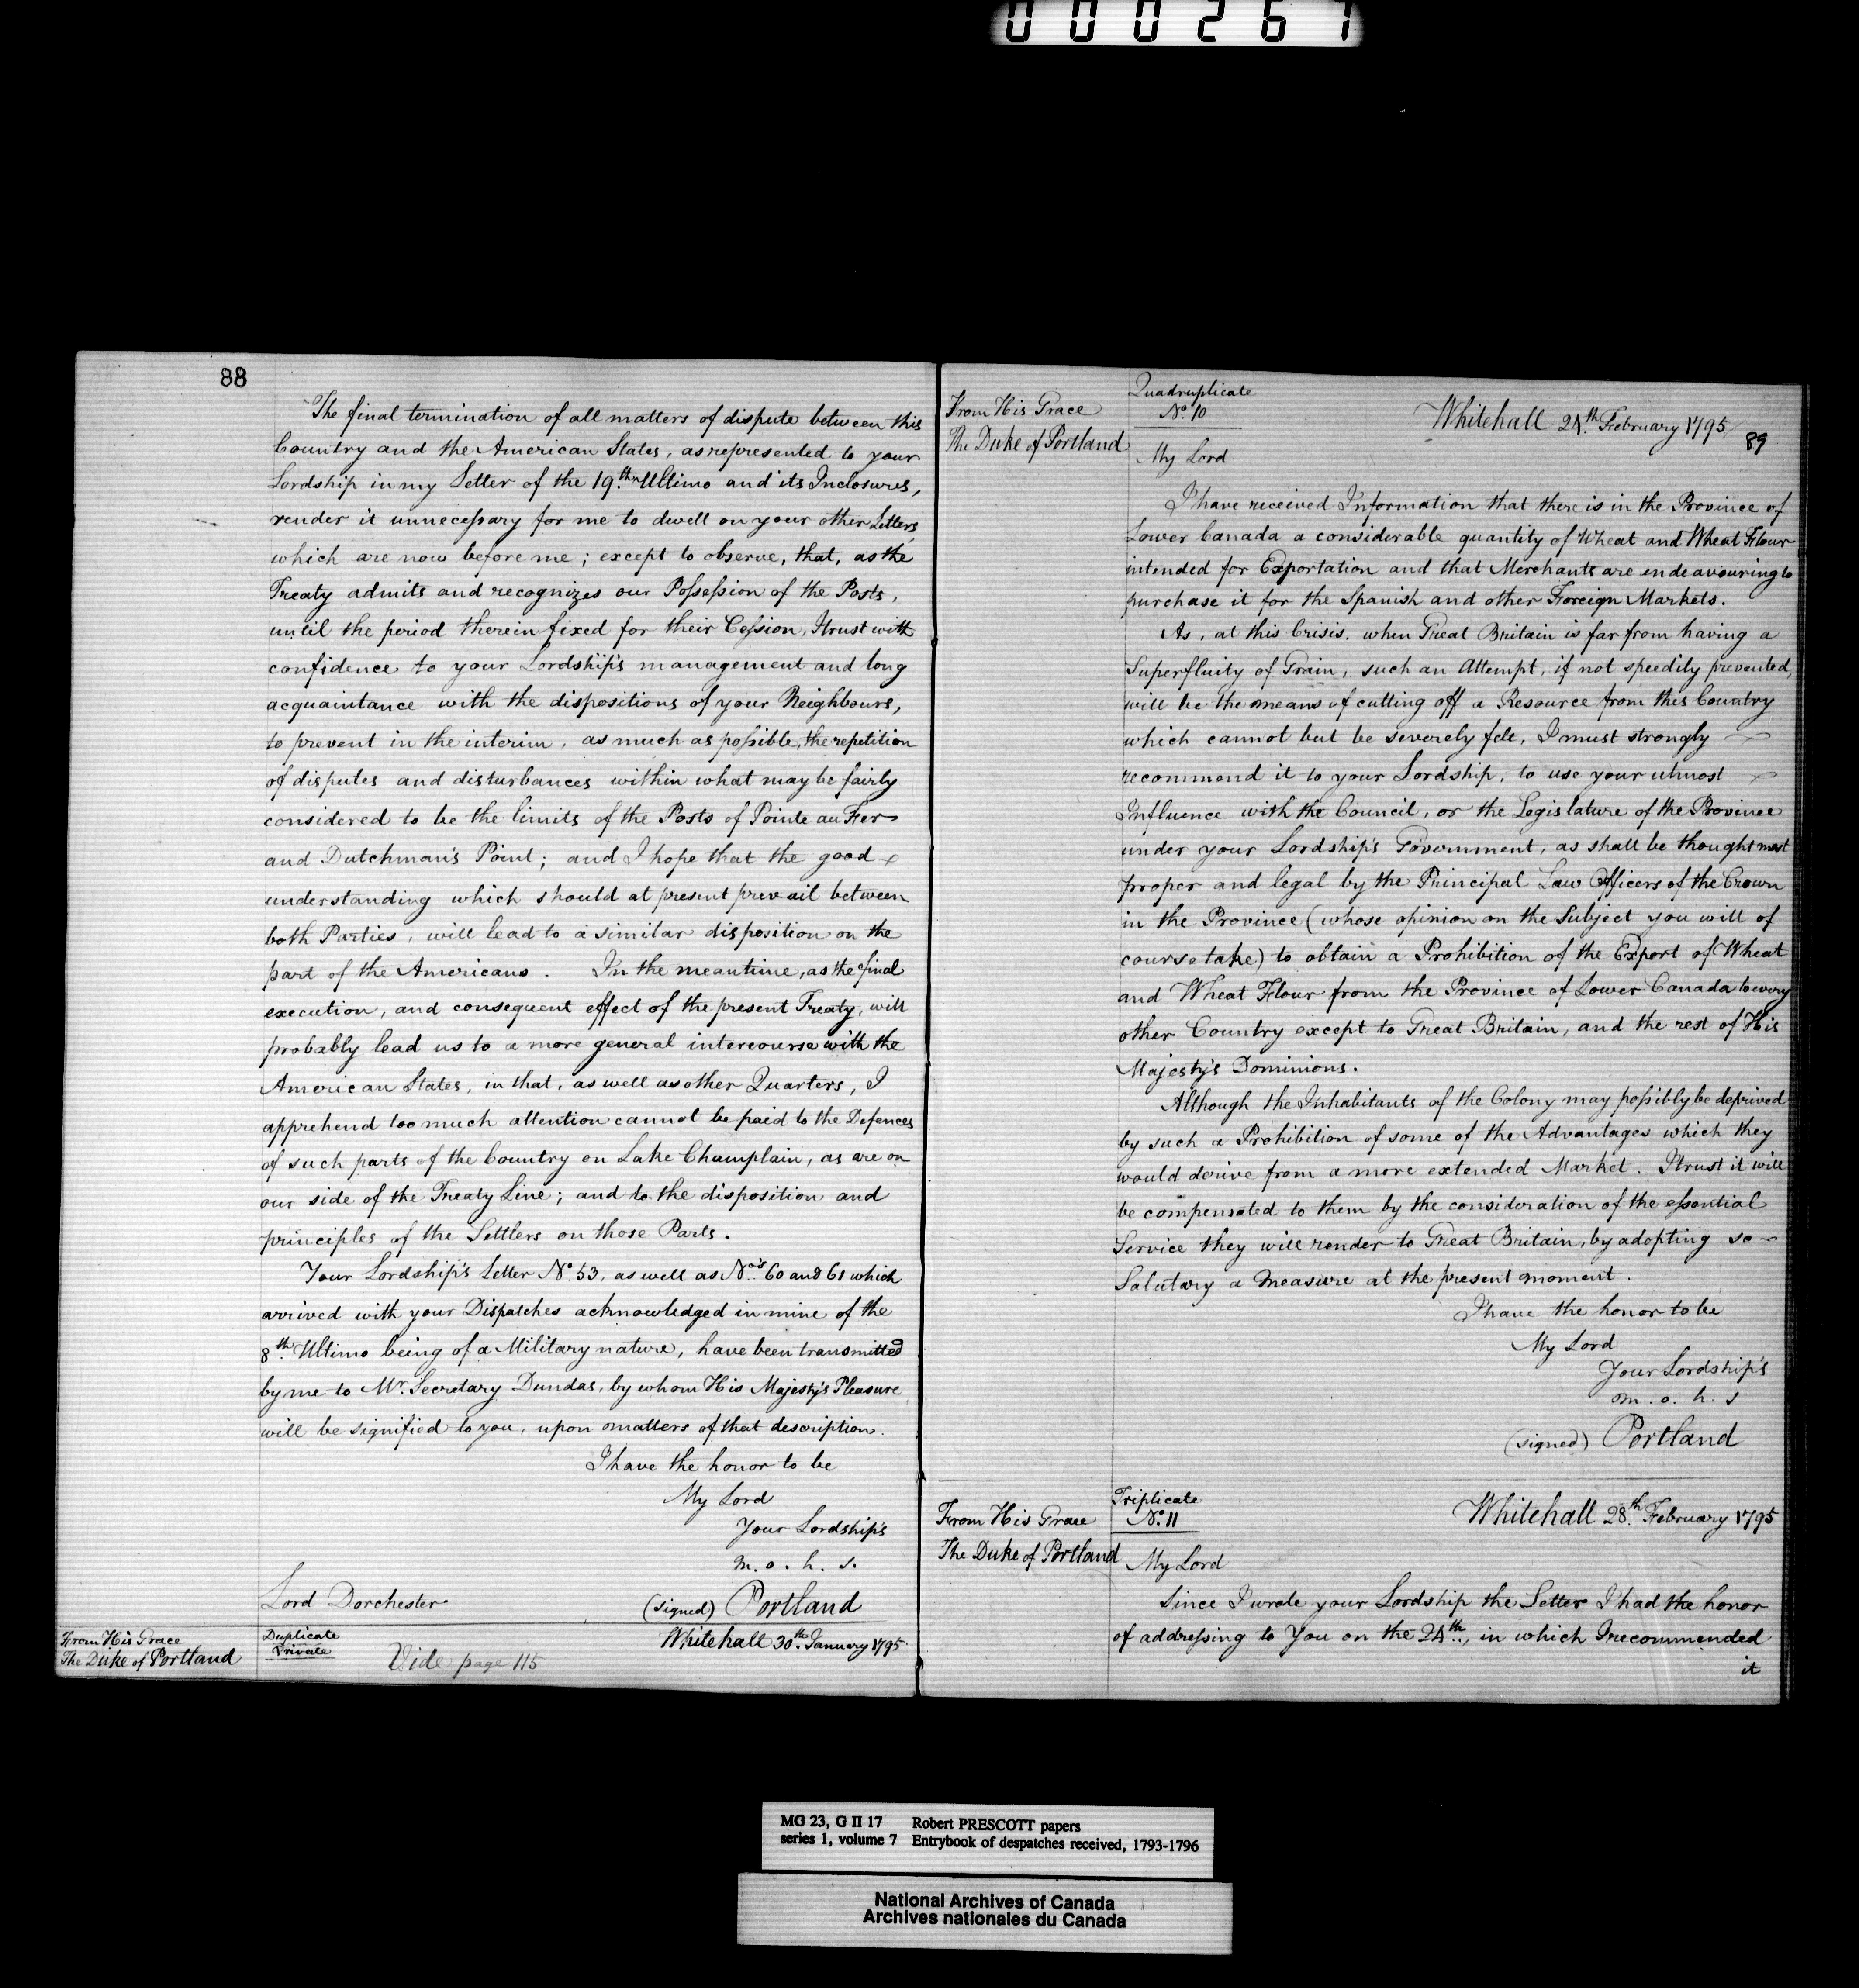 000267
88
The final termination of all matters of dispute between this
Country and the American States, as represented to your
Lordship in my Letter of the 19.th Ultimo and its Inclosures,
render it unnecessary for me to dwell on your other Letters
which are now before me; except to observe, that, as the
Treaty admits and recognizes our Possession of the Posts,
until the period therein fixed for their Cession, I trust with
confidence to your Lordship's management and long
acquaintance with the dispositions of your Neighbours,
to prevent in the interim, as much as possible, the repetition
of disputes and disturbances within what may be fairly
considered to be the limits of the Posts of Pointe au Fer
and Dutchman's Point; and I hope that the good
understanding which should at present prevail between
both Parties, will lead to a similar disposition on the
part of the Americans. In the meantime, as the final
execution, and consequent effect of the present Treaty, will
probably lead us to a more general intercourse with the
American States, in that, as well as other Quarters, I
apprehend too much attention cannot be paid to the Defences
of such parts of the Country on Lake Champlain, as are on
our side of the Treaty Line; and to the disposition and
principles of the Settlers on those Parts.
Your Lordship's Letter No. 53, as well as Nos. 60 and 61 which
arrived with your Dispatches acknowledged in mine of the
8th. Ultimo being of a Military nature, have been transmitted
by me to Mr. Secretary Dundas, by whom His Majesty's Pleasure
will be signified to you, upon matters of that description.
I have the honor to be
My Lord
Your Lordship's
m. o. h. s.
Lord Dorchester (signed) Portland
From His Grace
The Duke of Portland
Duplicate
Private
Vide page 115
Whitehall 30th. January 1795
From His Grace
The Duke of Portland
Quadruplicate
No. 10
Whitehall 24.th February 1795
89
My Lord
I have received Information that there is in the Province of
Lower Canada a considerable quantity of Wheat and Wheat Flour
intended for Exportation and that Merchants are endeavouring to
purchase it for the Spanish and other Foreign Markets.
As, at this Crisis, when Great Britain is far from having a
Superfluity of Grain, such an Attempt, if not speedily prevented,
will be the means of cutting off a Resource from this Country
which cannot but be severely felt, I must strongly
recommend it to your Lordship, to use your utmost
Influence with the Council, or the Legislature of the Province
under your Lordship's Government, as shall be thought most
proper and legal by the Principal Law Officers of the Crown
in the Province (whose opinion on the Subject you will of
course take) to obtain a Prohibition of the Export of Wheat
and Wheat Flour from the Province of Lower Canada to every
other Country except to Great Britain, and the rest of His
Majesty's Dominions.
Although the Inhabitants of the Colony may possibly be deprived
by such a Prohibition of some of the Advantages which they
would derive from a more extended Market. I trust it will
be compensated to them by the consideration of the essential
Service they will render to Great Britain, by adopting so
Salutary a Measure at the present moment.
I have the honor to be
My Lord
Your Lordship's
m. o. h. s
(signed) Portland
From His Grace
The Duke of Portland
Triplicate
No. 11
Whitehall 28.th February 1795
My Lord
Since I wrote your Lordship the Letter I had the honor
of addressing to You on the 24th., in which I recommended
it
MG 23, G II 17 Robert PRESCOTT papers
series 1, volume 7 Entrybook of despatches received, 1793-1796
National Archives of Canada
Archives nationales du Canada